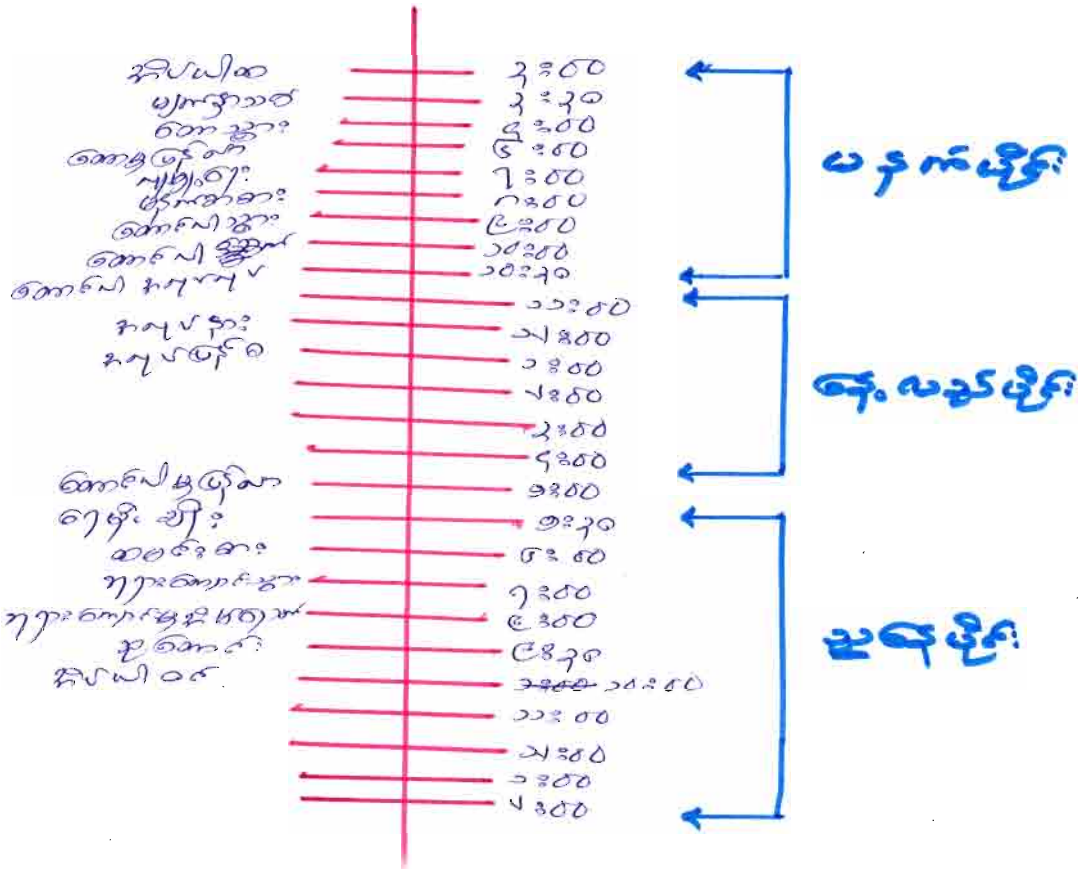 အိပ်ယါထ ၃း၀၀
မျက်နှာသစ် ၃း၃၀
တောသွား ၄း၀၀
တောမှပြန်လာ ၆း၀၀
၇း၀၀
မနက်စာစား ၈း၀၀
တောင်ယါသွား ၉း၀၀
တောင်ယါ ၁၀း၀၀
တောင်ယါ အလုပ်လုပ် ၁၀း၃၀
၁၁း၀၀
အလုပ်နား ၁၂း၀၀
အလုပ်ပြန်စ ၁း၀၀
၂း၀၀
၃း၀၀
၄း၀၀
တောင်ယါမှပြန်လာ ၅း၀၀
ရေမိုးချိုး ၅း၃၀
ထမင်းစား ၆း၀၀
ဘုရားကျောင်းသွား ၇း၀၀
ဘုရားကျောင်းမှအိမ်ရောက် ၉း၀၀
ဆုတောင်း ၉း၃၀
အိပ်ယါဝင် ၁၀း၀၀
၁၁း၀၀
၁၂း၀၀
၁း၀၀
၂း၀၀
မနက်ပိုင်း
နေ့လည်ပိုင်း
ညနေပိုင်း